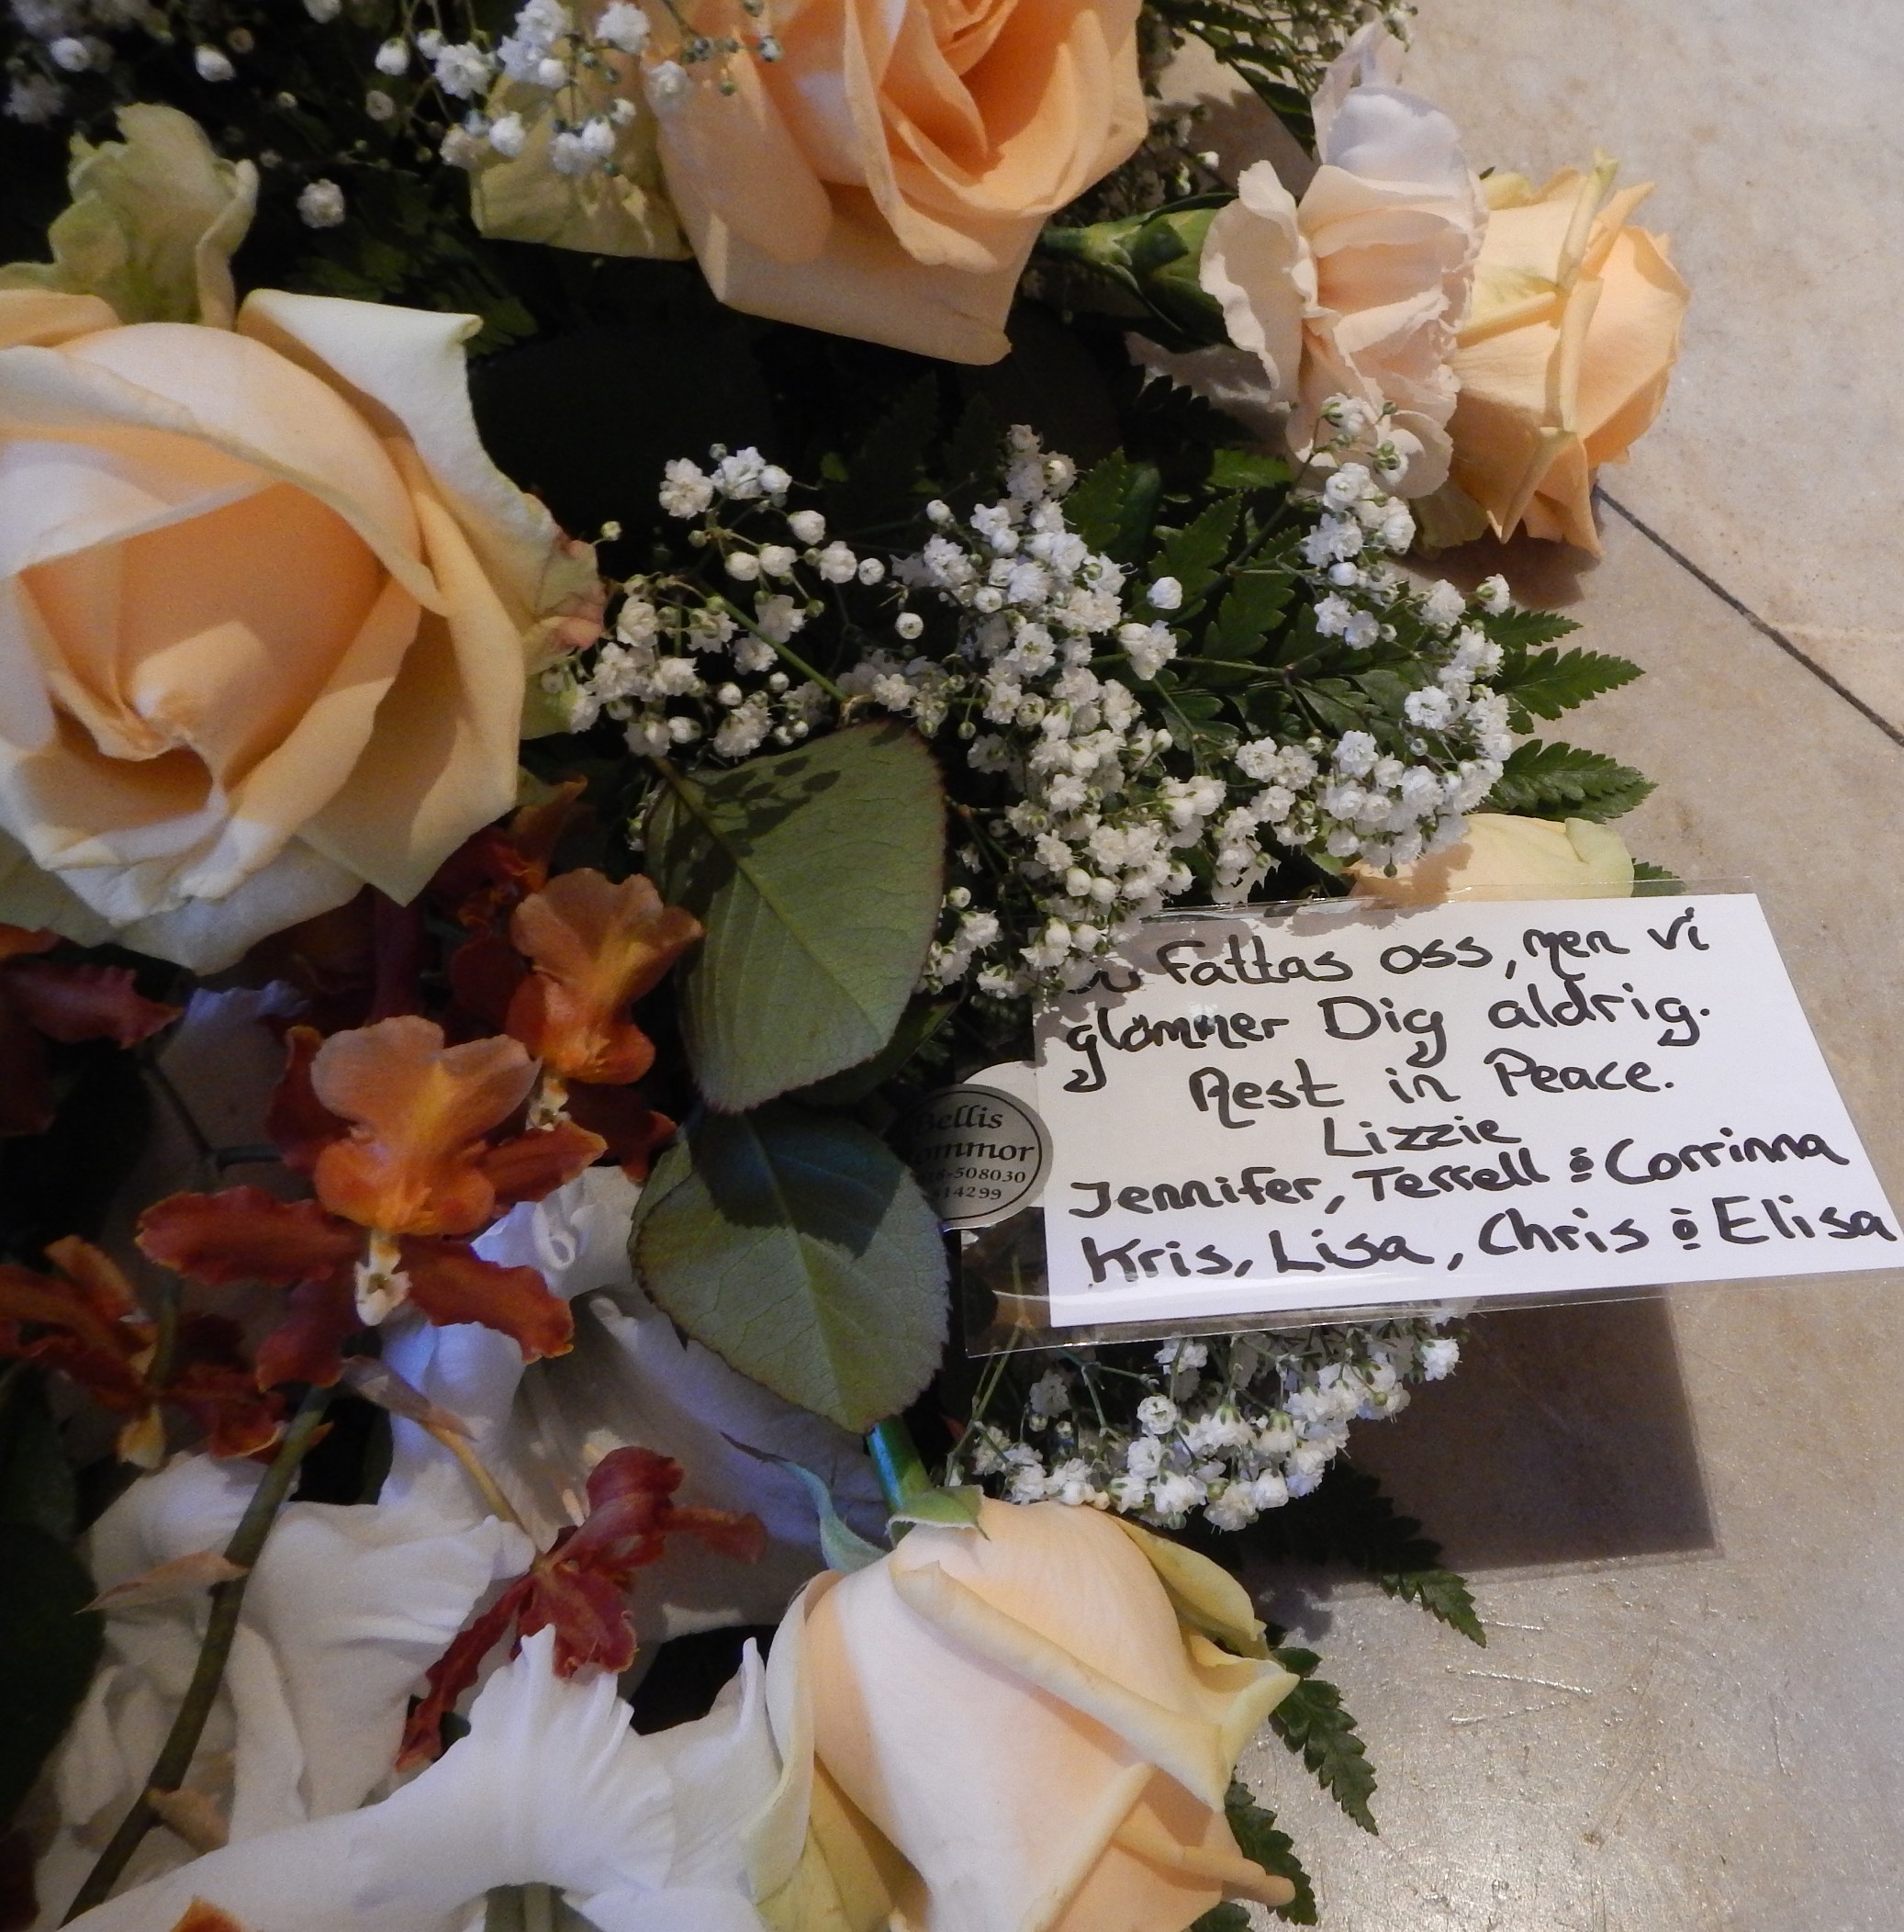 fattas oss, men vi
glömmer Dig aldrig.
Rest in Peace.
Lizzie
Jennifer, Terrell & Corrinna
Kris, Lisa, Chris & Elisa
Bellis
-508030
14299